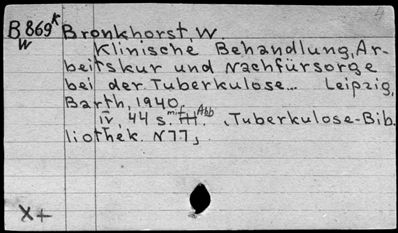 B869k Bronkhorst, W.
W Klinische Behandlung, Ar-
beitskur und Nachfürsorge
bei der Tuberkulose... Leipzig,
Barth, 1940.
IV, 44 s. mit Abb. Tuberkulose-Bib.
liothek. N77,
X+